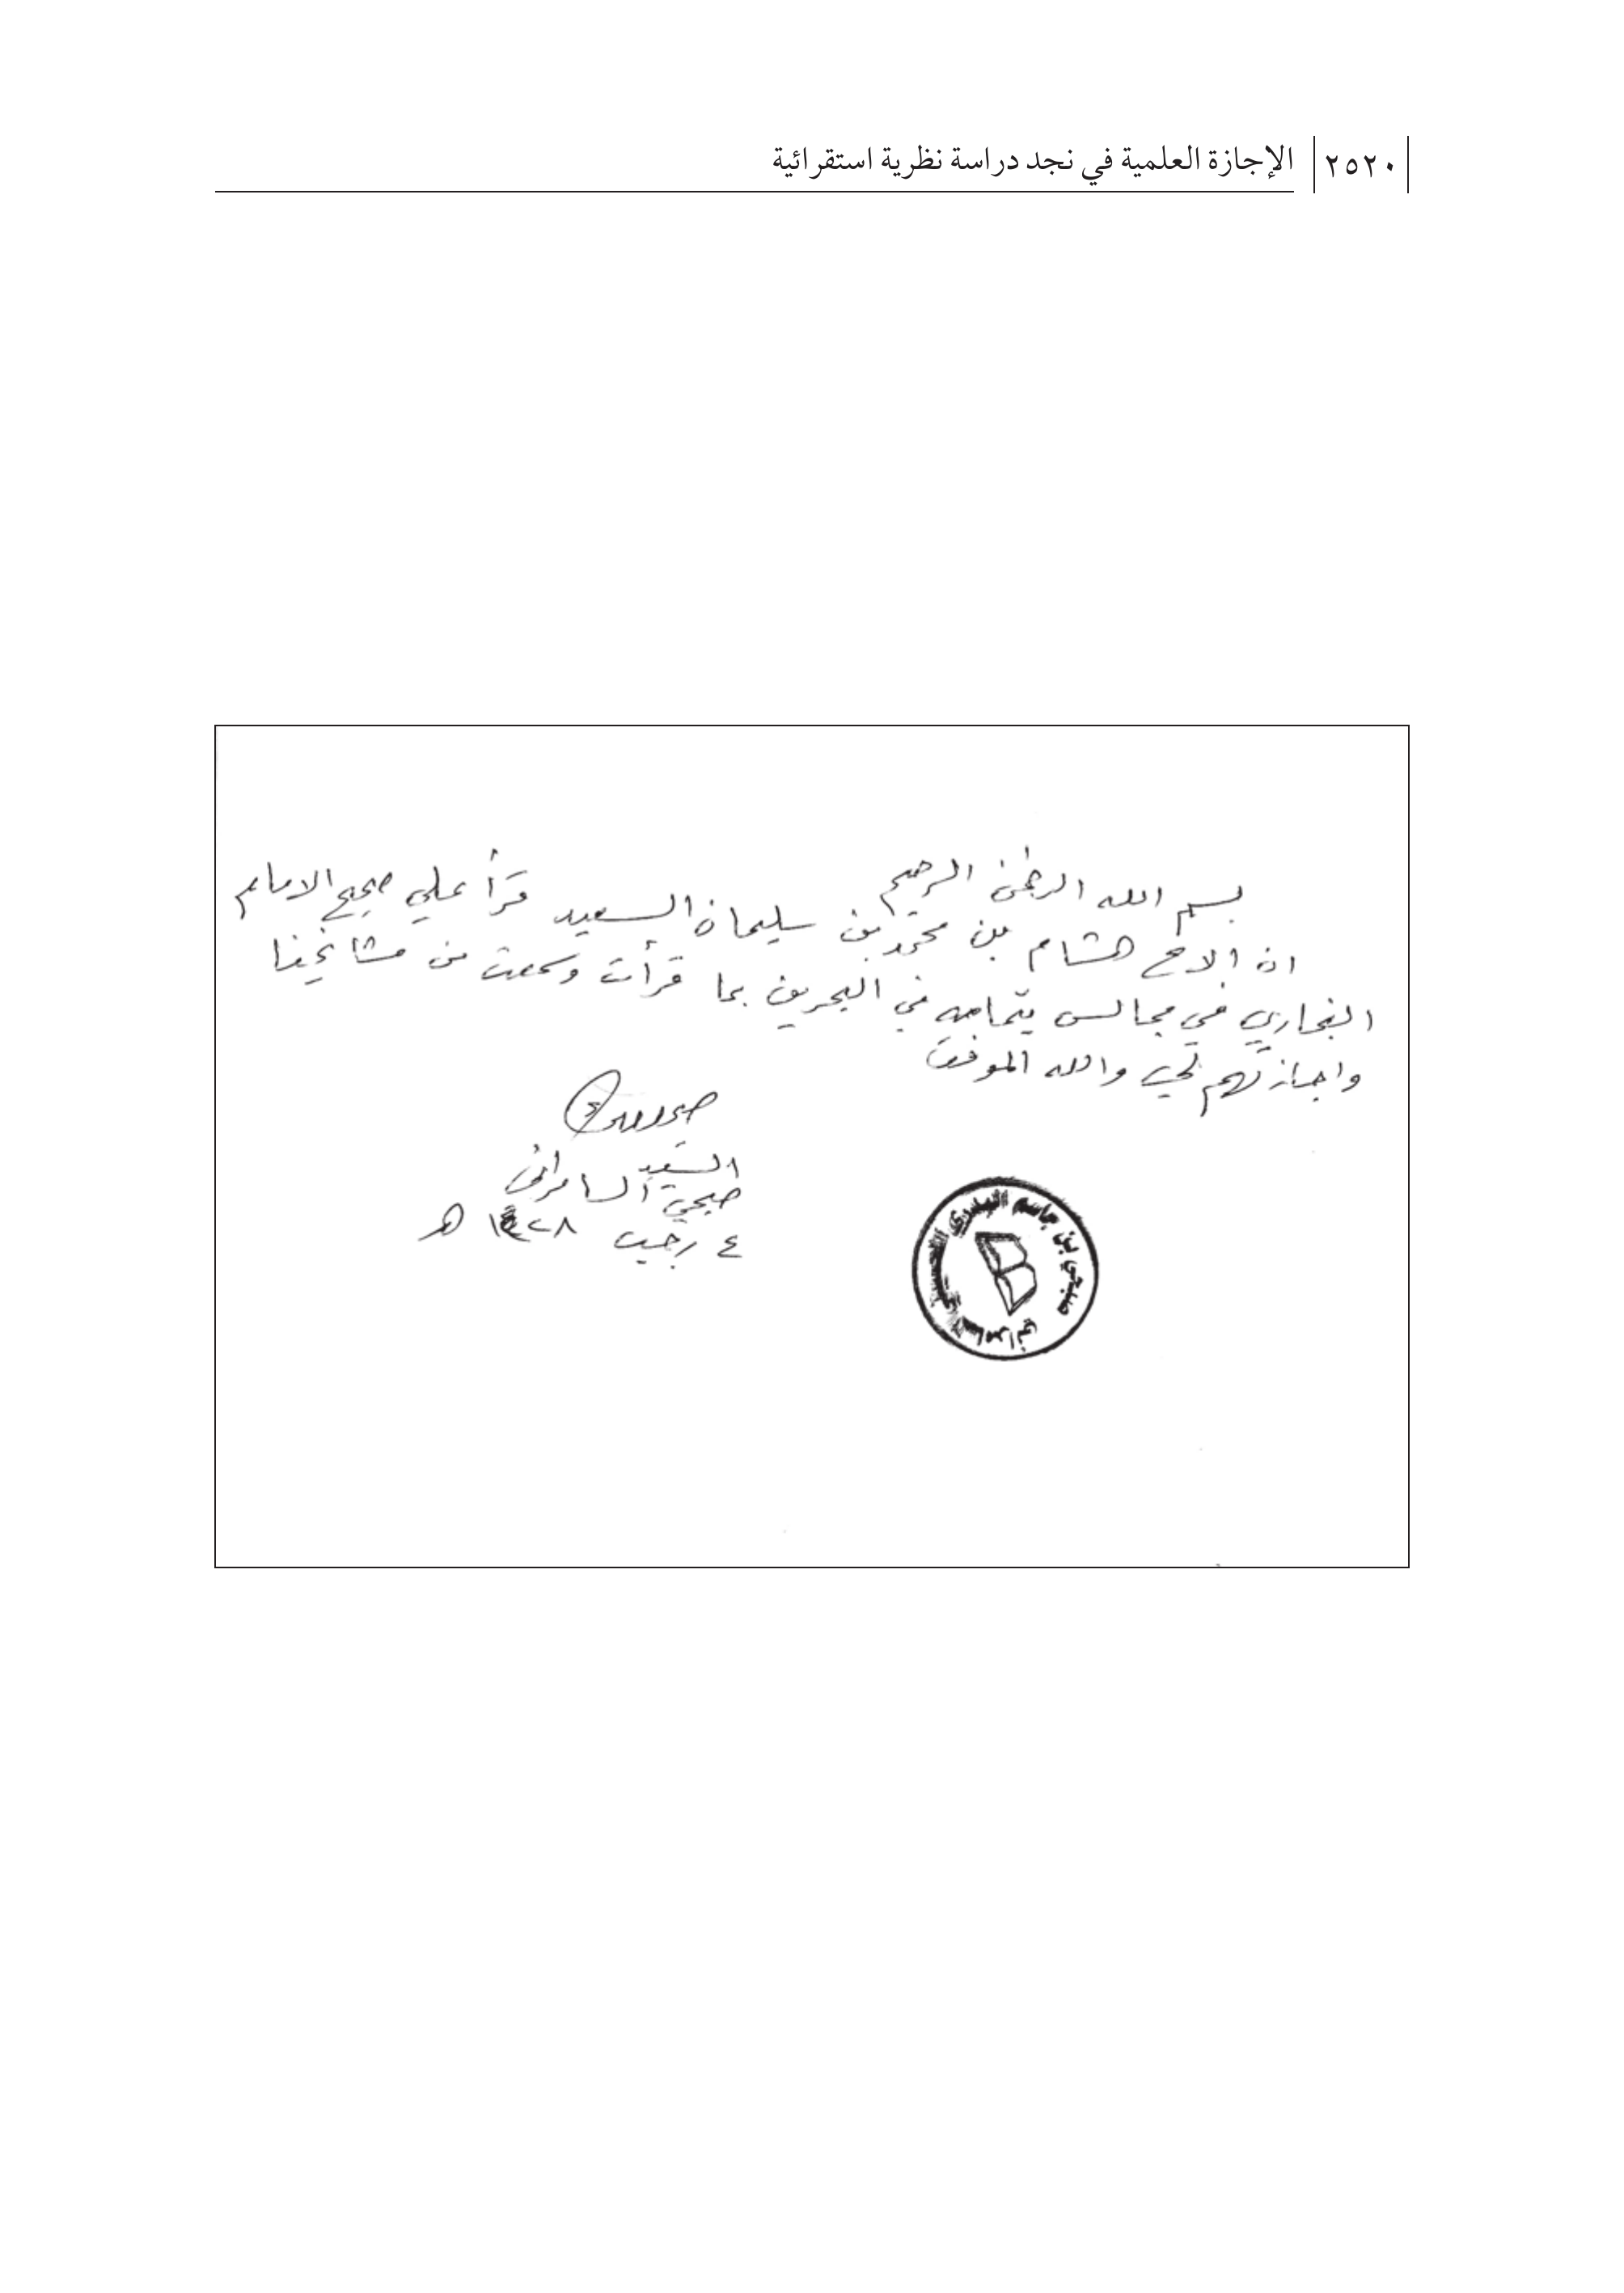 ٢٥٢٠ الإجازة العلمية في نجد دراسة نظرية استقرائية
بسم الله الرحمن الرحيم
ان الاخ هشام بن محمد بن سليمان السعيد قرأ علي صحيح الامام
البخاري في مجالس بتمامه في البحرين بما قرأت وسمعت من مشايخنا
واجازتهم لي والله الموفق
السيد
صبحي السامرائي
٤ رجب ١٤٢٨ هـ
صبحي بن جاسم البدري الحسيني السامرائي